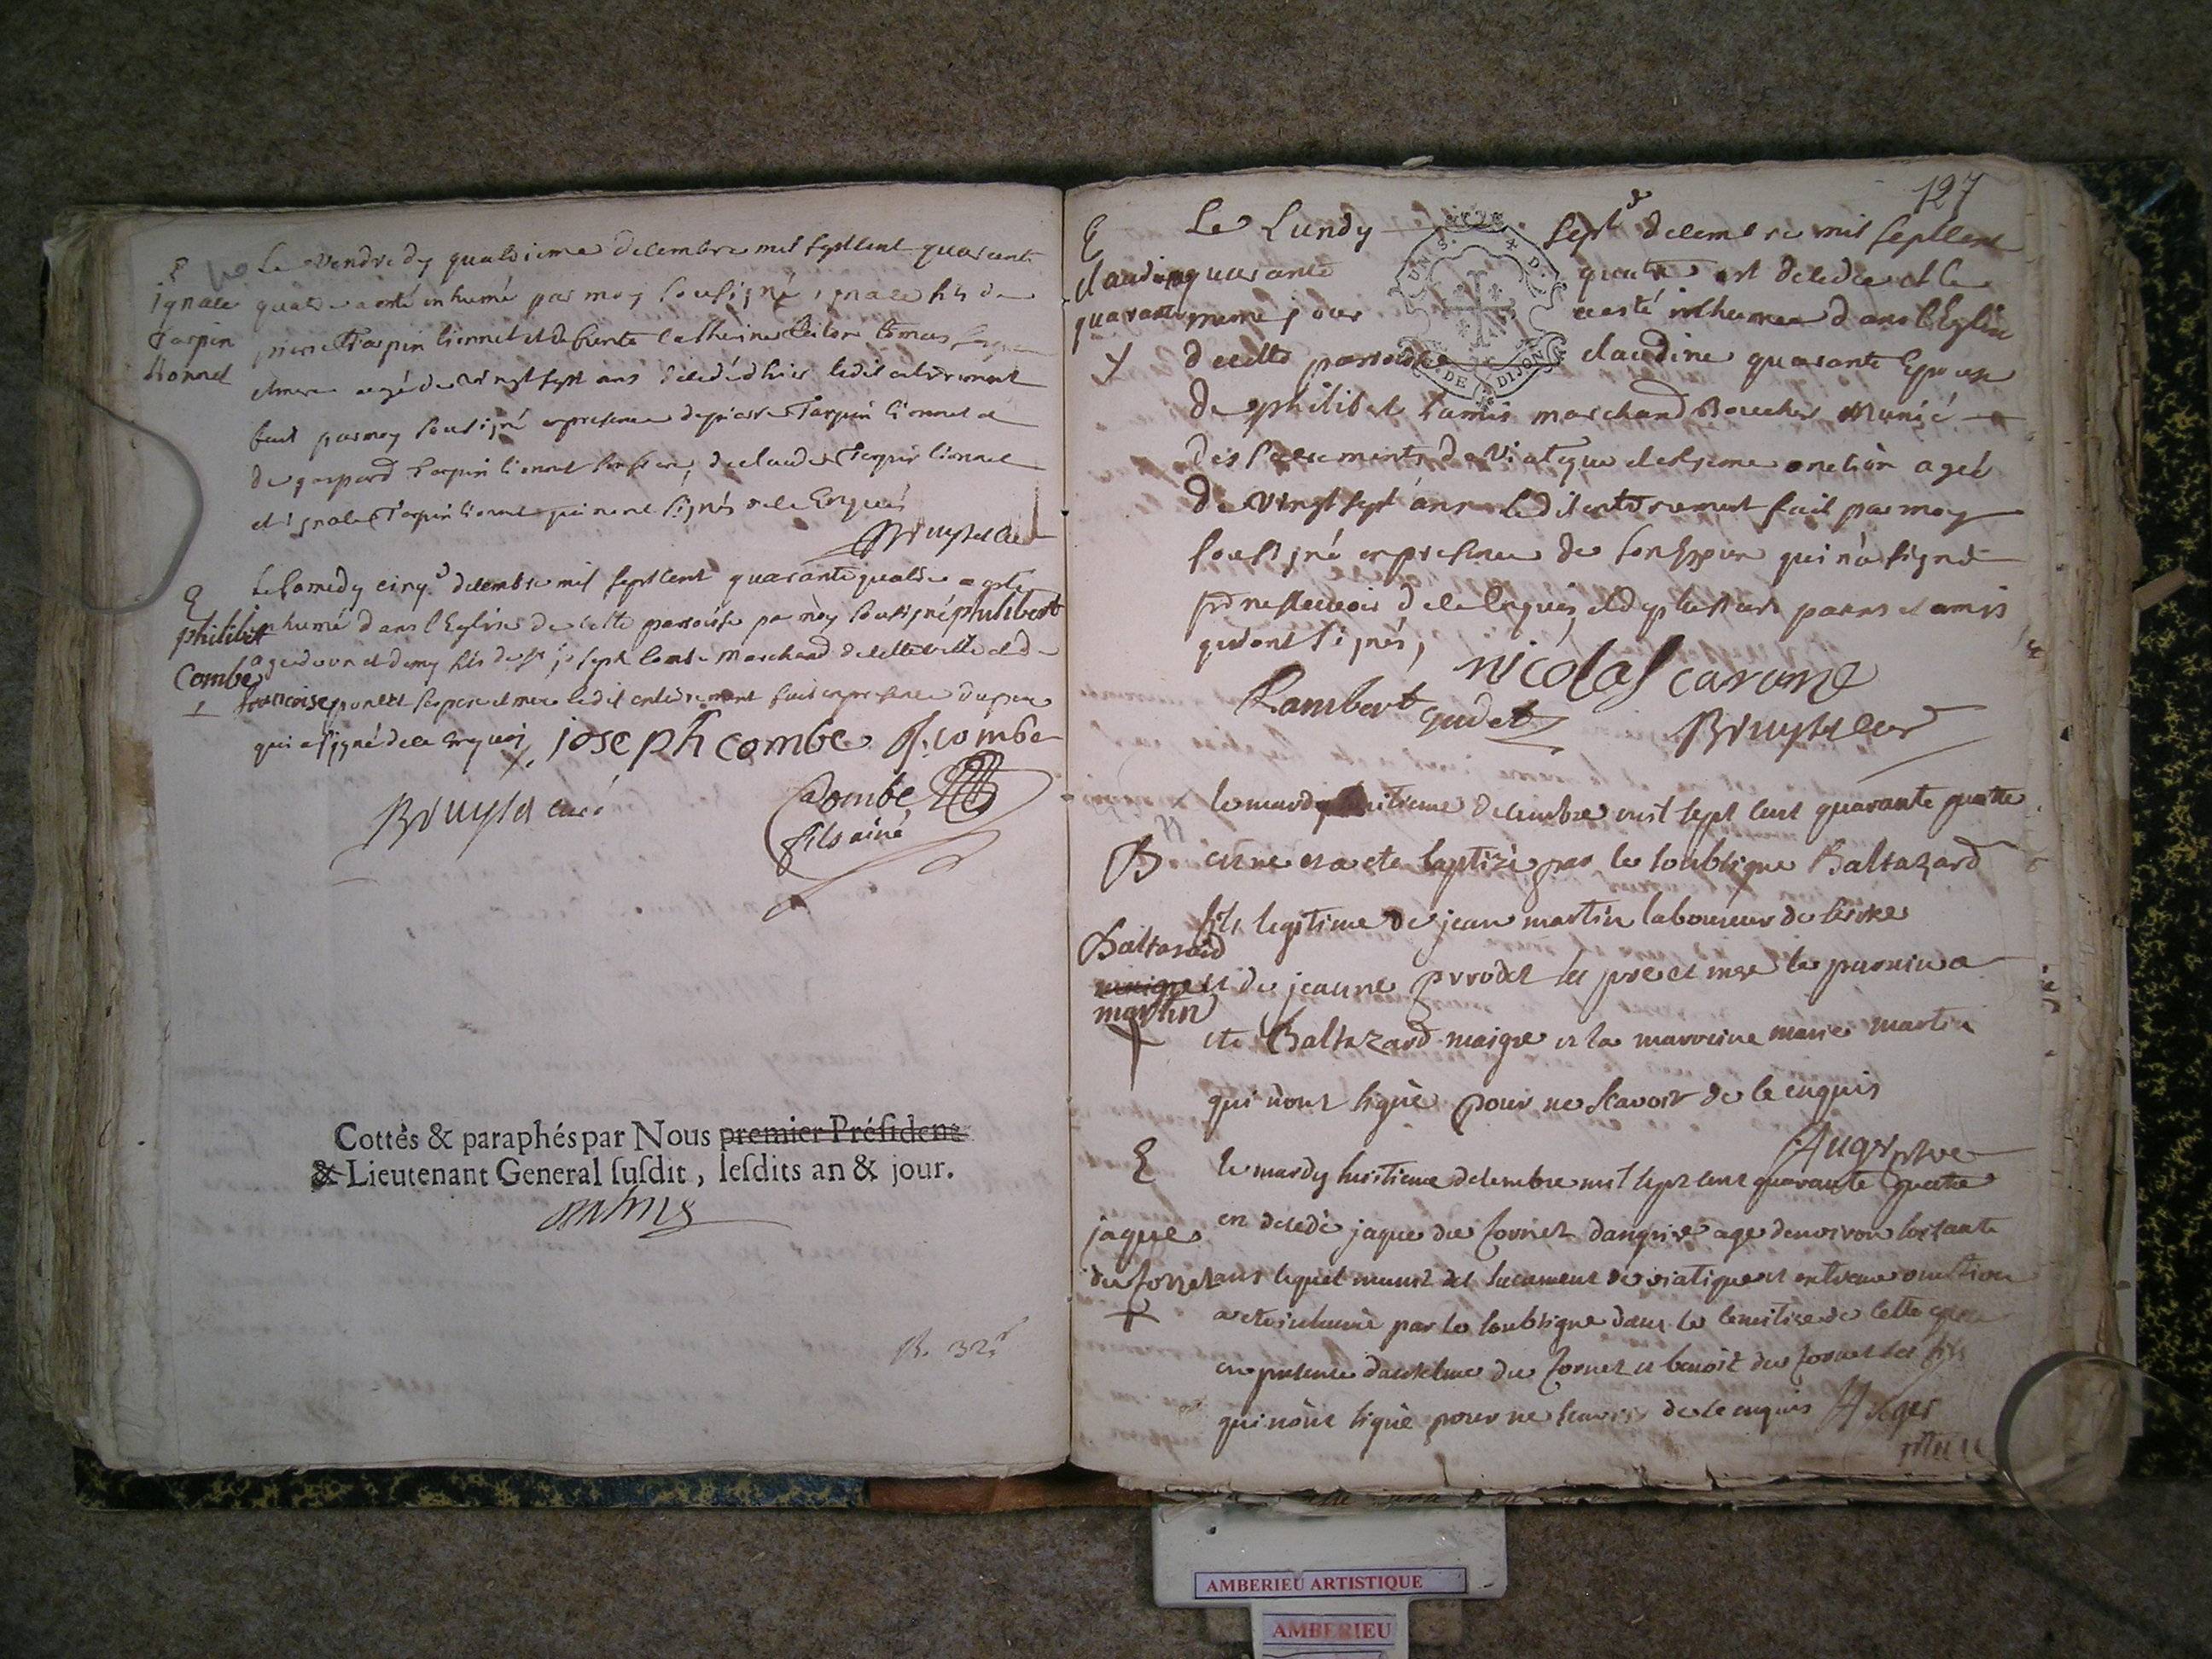 Le Vendredy quatrieme decembre mil sept cent quarante
E
ignace
Tarpin
lionnet
quatre a esté inhumé par moy sousigné ignace fils de
pierre Tarpin lionnet et defunte Catherine
et mere agé de vingt sept ans decedé d'hier ledit enterrement
fait par moy sousigné en presence de pierre Tarpin lionnet et
de gaspard Tarpin lionnet son frere, de claude Tarpin lionnet
et ignace Tarpin lionnet qui n'ont signés de ce Enquis
Bruyset curé
E
philibert
Combe
Le samedy cinq.e decembre mil sept cent quarante quatre a esté
inhumé dans l'Eglise de cette parroisse par moy sousigné philibert
agé d'un et demy fils de sr joseph Combe Marchand de cette ville et de
francoise ses pere et mere ledit enterrement fait en presence du pere
qui a signé de ce enquis, joseph combe. J. combe
Bruyset curé
Combe
fils ainé
Cottés & paraphés par Nous premier Président
& Lieutenant General susdit, lesdits an & jour.
R. 32.
127
E
claudine
quarante
Le Lundy sept.e decembre mil sept cent
quarante quatre est decedée et le
meme jour a esté inhumée dans l'Eglise
de cette parroisse claudine quarante Epouse
de philibert marchand Boucher Munié
des sacrements de Viatique et extreme onction agée
de vingt sept ans ledit enterrement fait par moy
sousigné en presence de son Epoux qui n'a signé
pr ne scavoir de ce Enquis, et de plusieurs parens et amis
qui ont signés,
nicolas carome
Rambert
gudet
Bruyset curé
UN S. D.
G. DE DIJON
le mardy huitieme decembre mil sept cent quarante quatre
B
est ne et a ete baptizé par le soubsigne Baltazard
fils legitime de jean martin laboureur de
Baltasard
maigre
martin
et de jeanne ses pere et mere le parrin a
ete Baltazard maigre et la marreine marie martin
qui n'ont signé pour ne scavoir de ce enquis
Auger ptre
E
le mardy huitieme decembre mil sept cent quarante quatre
jaque
du Cornet
est decedé jaque du Cornet age denviron soisante
ans lequel munit des sacrement de viatique et extreme onction
a ete inhumé par le soubsigne dans le cemitiere de cette
en presence danthelme du Cornet et benoit du Cornet ses fils
qui n'ont signé pour ne scavoir de ce enquis Auger
ptre
AMBERIEU ARTISTIQUE
AMBERIEU